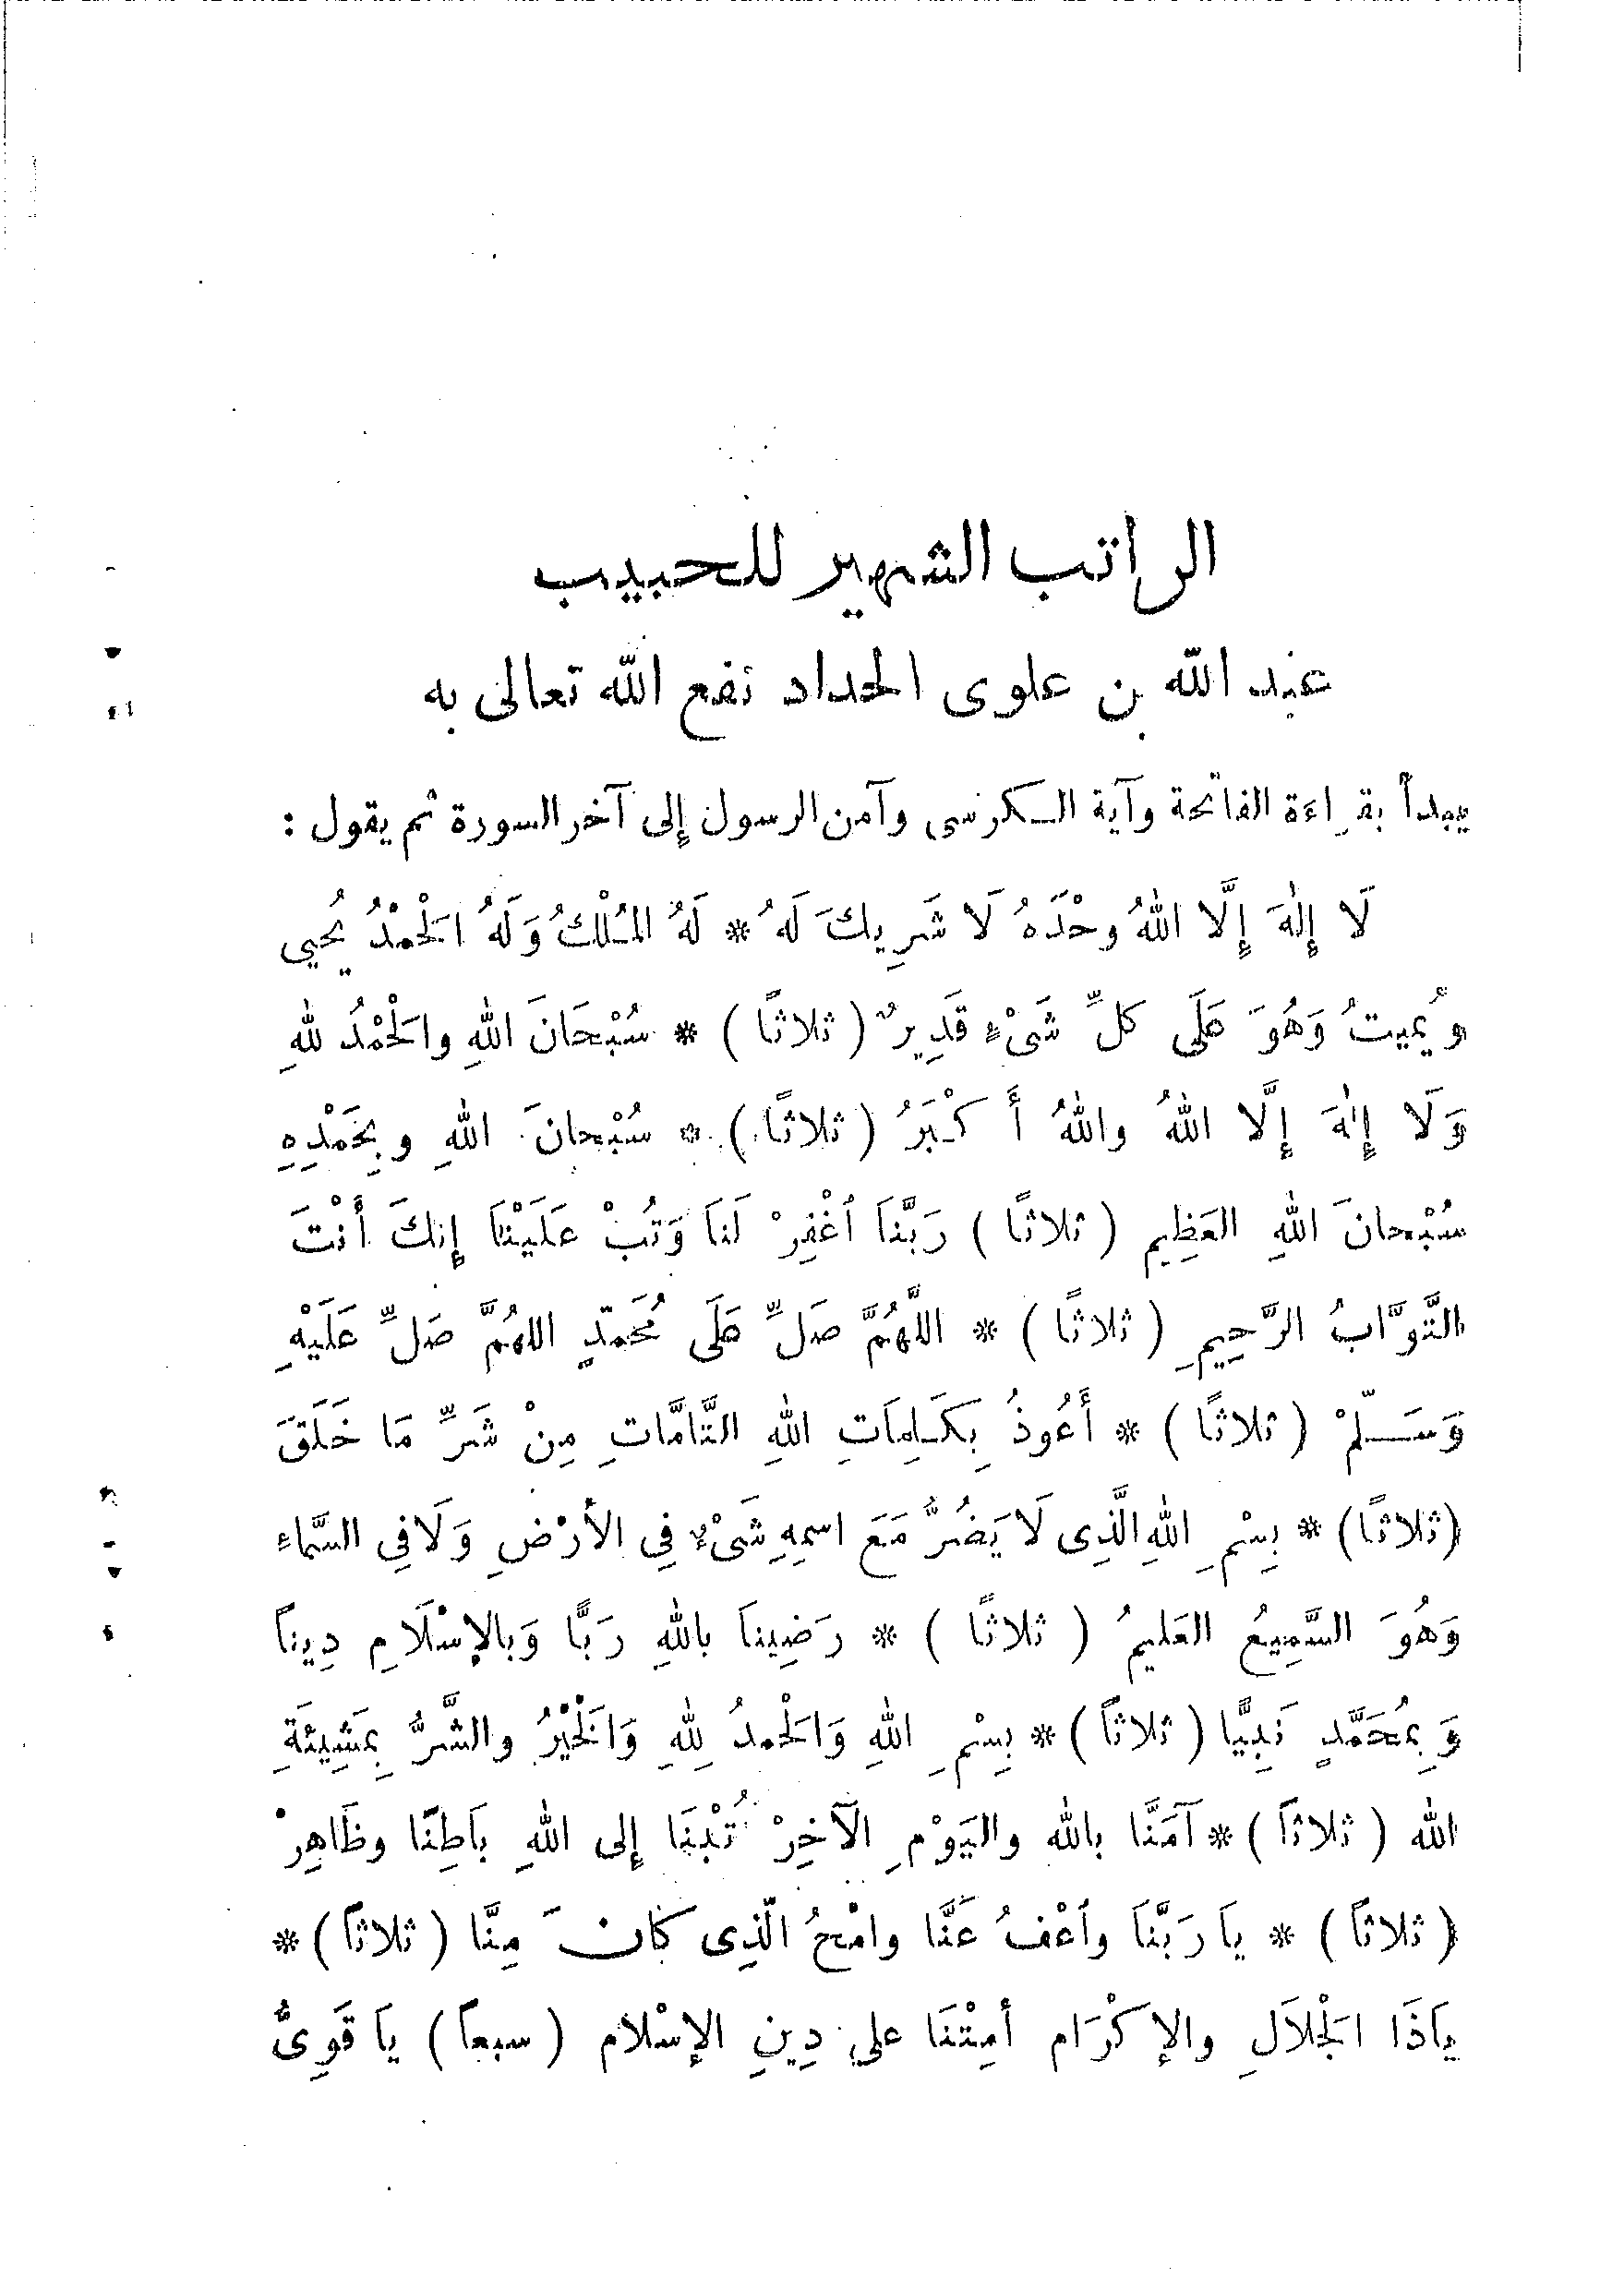 الراتب الشهير للحبيب
عبد الله بن علوى الحداد نفع الله تعالى به
يبدأ بقراءة الفاتحة وآية الكرسى وآمن الرسول إلى آخر السورة ثم يقول :
لَا إِلٰهَ إِلَّا اللهُ وحْدَهُ لَا شَرِيكَ لَهُ * لَهُ المُلْكُ وَلَهُ الحَمْدُ يُحيى
ويُميتُ وَهُوَ عَلَى كلِّ شَىْءٍ قَدِيرٌ ( ثلاثًا ) * سُبْحَانَ اللهِ والحَمْدُ للهِ
وَلَا إِلٰهَ إِلَّا اللهُ واللهُ أَكْبَرُ ( ثلاثًا ) * سُبْحانَ اللهِ وبِحَمْدِهِ
سُبْحانَ اللهِ العَظِيمِ ( ثلاثًا ) رَبَّنَا اغْفِرْ لَنَا وَتُبْ عَلَيْنَا إِنكَ أَنْتَ
التَّوَّابُ الرَّحِيمِ ( ثلاثًا ) * اللَّهُمَّ صَلِّ عَلَى مُحَمَّدٍ اللهُمَّ صَلِّ عَلَيْهِ
وَسَلِّمْ ( ثلاثًا ) * أَعُوذُ بِكَلِمَاتِ اللهِ التَّامَّاتِ مِنْ شَرِّ مَا خَلَقَ
(ثلاثًا) * بِسْمِ اللهِ الَّذِى لَا يَضُرُّ مَعَ اسمِهِ شَىْءٌ فِي الأَرْضِ وَلَا فِي السَّماءِ
وَهُوَ السَّمِيعُ العَليمُ ( ثلاثًا ) * رَضِينَا باللهِ رَبًّا وَبالإِسْلَامِ دِينًا
وَبِمُحَمَّدٍ نَبِيًّا ( ثلاثًا ) * بِسْمِ اللهِ وَالحْمدُ لِلهِ وَالخَيْرُ والشَّرُّ بِمَشِيئَةِ
الله ( ثلاثًا ) * آمَنَّا بالله واليَوْمِ الآخِرْ تُبْنَا إِلى اللهِ بَاطِنًا وظَاهِرْ
( ثلاثًا ) * يَا رَبَّنَا واعْفُ عَنَّا وامْحُ الَّذِى كَانَ مِنَّا ( ثلاثًا ) *
يَاذَا الجْلَالِ والإِكْرَام أَمِتْنَا على دِينِ الإِسْلام ( سبعًا ) يَا قَوِىُّ